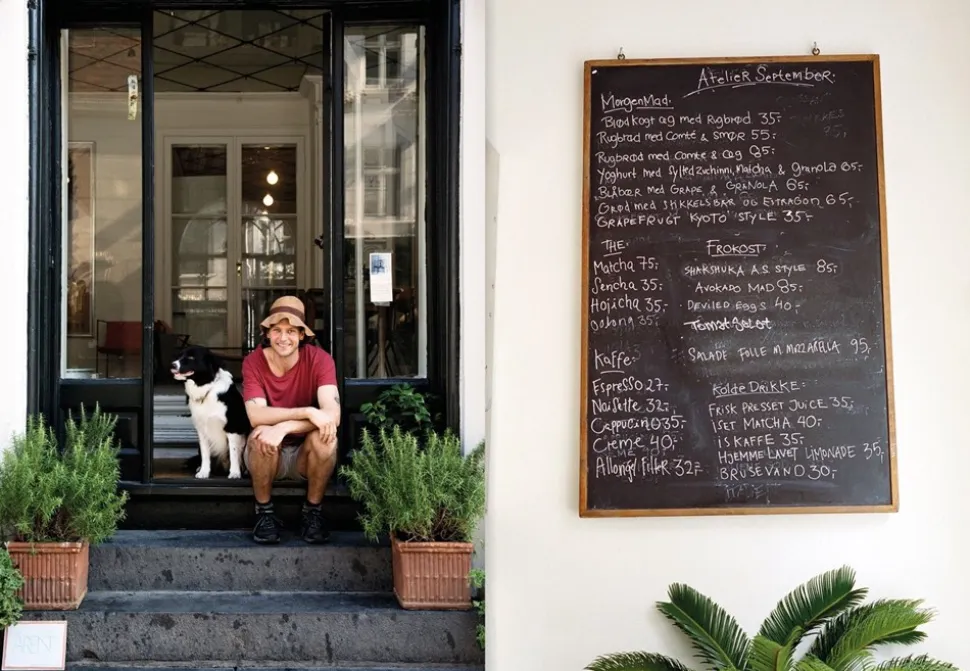 Atelier September.
MorgenMad.
Blødkogt æg med Rugbrød 35,-
Rugbrød med Comté & smør 55,-
Rugbrød med Comte & æg 65,-
Yoghurt med syltd zuchinni, Matcha & Granola 65,-
Blåbær med Grape & Granola 65,-
Grød med stikkelsbær og Estragon 65,-
Grapefrugt Kyoto style 35,-
The:
Matcha 75,-
Sencha 35,-
Hojicha 35,-
Oolong 35,-
Frokost:
Shakshuka A.S style 85,-
Avokado mad 85,-
Deviled eggs 40,-
Salade folle m. mozzarella 95,-
Kaffe:
Espresso 27,-
Noisette 32,-
Cappucino 35,-
Creme 40,-
Allongé Filter 32,-
Kolde Drikke:
Frisk presset juice 35,-
Iset Matcha 40,-
Iskaffe 35,-
Hjemmelavet limonade 35,-
Brusevand 30,-